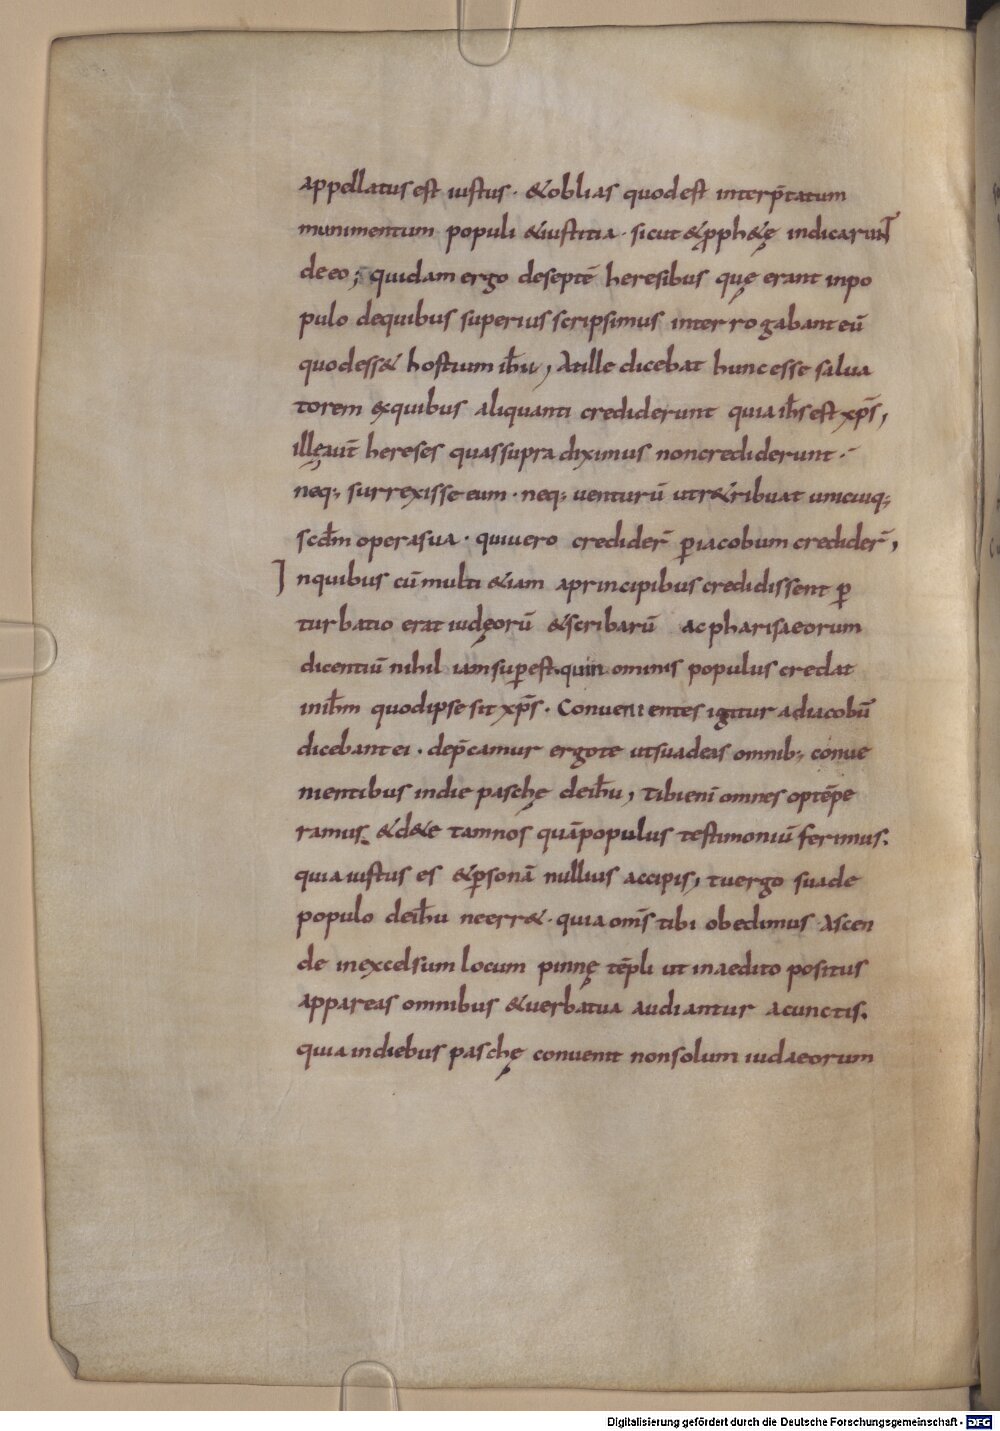 appellatus est iustus · &oblias quod est interp̄tatum
munimentum populi &iustitia · sicut &pph&ę indicarunt̄
deeo; quidam ergo deseptē heresibus quę erant inpo
pulo dequibus superius scripsimus interrogabant eū
quodess& hostium ihu, Atille dicebat hunc esse salua
torem exquibus aliquanti crediderunt quia ihs est xps,
illęaut̄ hereses quassupra diximus noncrediderunt ·
neq; surrexisse eum · neq; uenturū utr&ribuat unicuiq;
scdm operasua · quiuero credider̄ p̱iacobum credider̄,
Inquibus cū multi &iam aprincipibus credidissent p̱
turbatio erat iudęorū &scribarū ac pharisaeorum
dicentiū nihil iamsup̱est quin omnis populus credat
inihm quodipse sit xps · Conuenientes igitur adiacobū
dicebant ei · dep̄camur ergote utsuadeas omnib; conue
nientibus indie paschę deihu, tibieni omnes optēpe
ramus. &d&e tamnos quāpopulus testimoniū ferimus.
quia iustus es &p̱sonā nullius accipis, tuergo suade
populo deihu neerr& · quia om̄s tibi obedimus Ascen
de inexcelsum locum pinnę tēpli ut inaedito positus
appareas omnibus &uerbatua audiantur acunctis.
quia indiebus paschę conuenit nonsolum iudaeorum
Digitalisierung gefördert durch die Deutsche Forschungsgemeinschaft - DFG